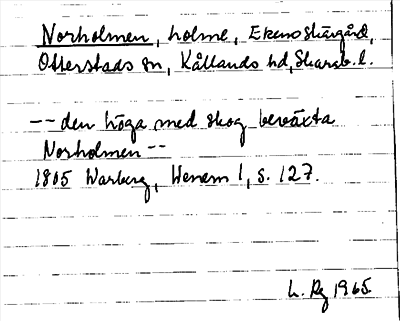 Norholmen, holme, Ekens Skärgård,
Otterstads sn, Kållands hd, Skarab. l.
-- den höga med skog beväxta
Norholmen --
1805 Warberg, Wenern 1, s. 127.
L. Rg 1965.